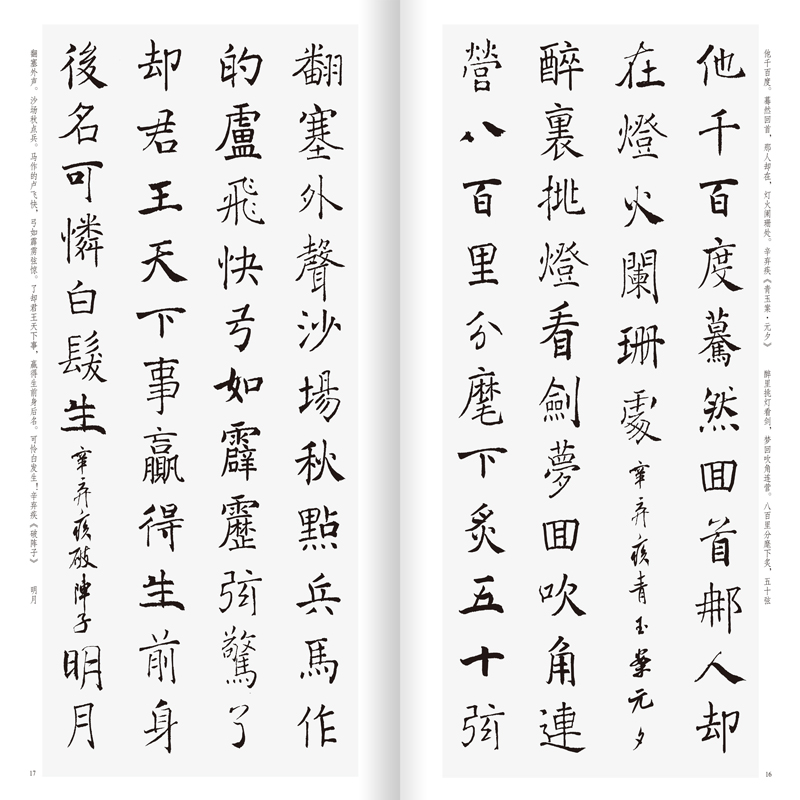 他千百度。蓦然回首，那人却在，灯火阑珊处。辛弃疾《青玉案·元夕》 醉里挑灯看剑，梦回吹角连营。八百里分麾下炙，五十弦
他千百度驀然回首那人却
在燈火闌珊處 辛弃疾青玉案元夕
醉裏挑燈看劍夢回吹角連
營八百里分麾下炙五十弦
16
翻塞外聲沙場秋點兵馬作
的盧飛快弓如霹靂弦驚了
却君王天下事贏得生前身
後名可憐白髮生 辛弃疾破陣子 明月
翻塞外声。沙场秋点兵。马作的卢飞快，弓如霹雳弦惊。了却君王天下事，赢得生前身后名。可怜白发生！辛弃疾《破阵子》 明月
17